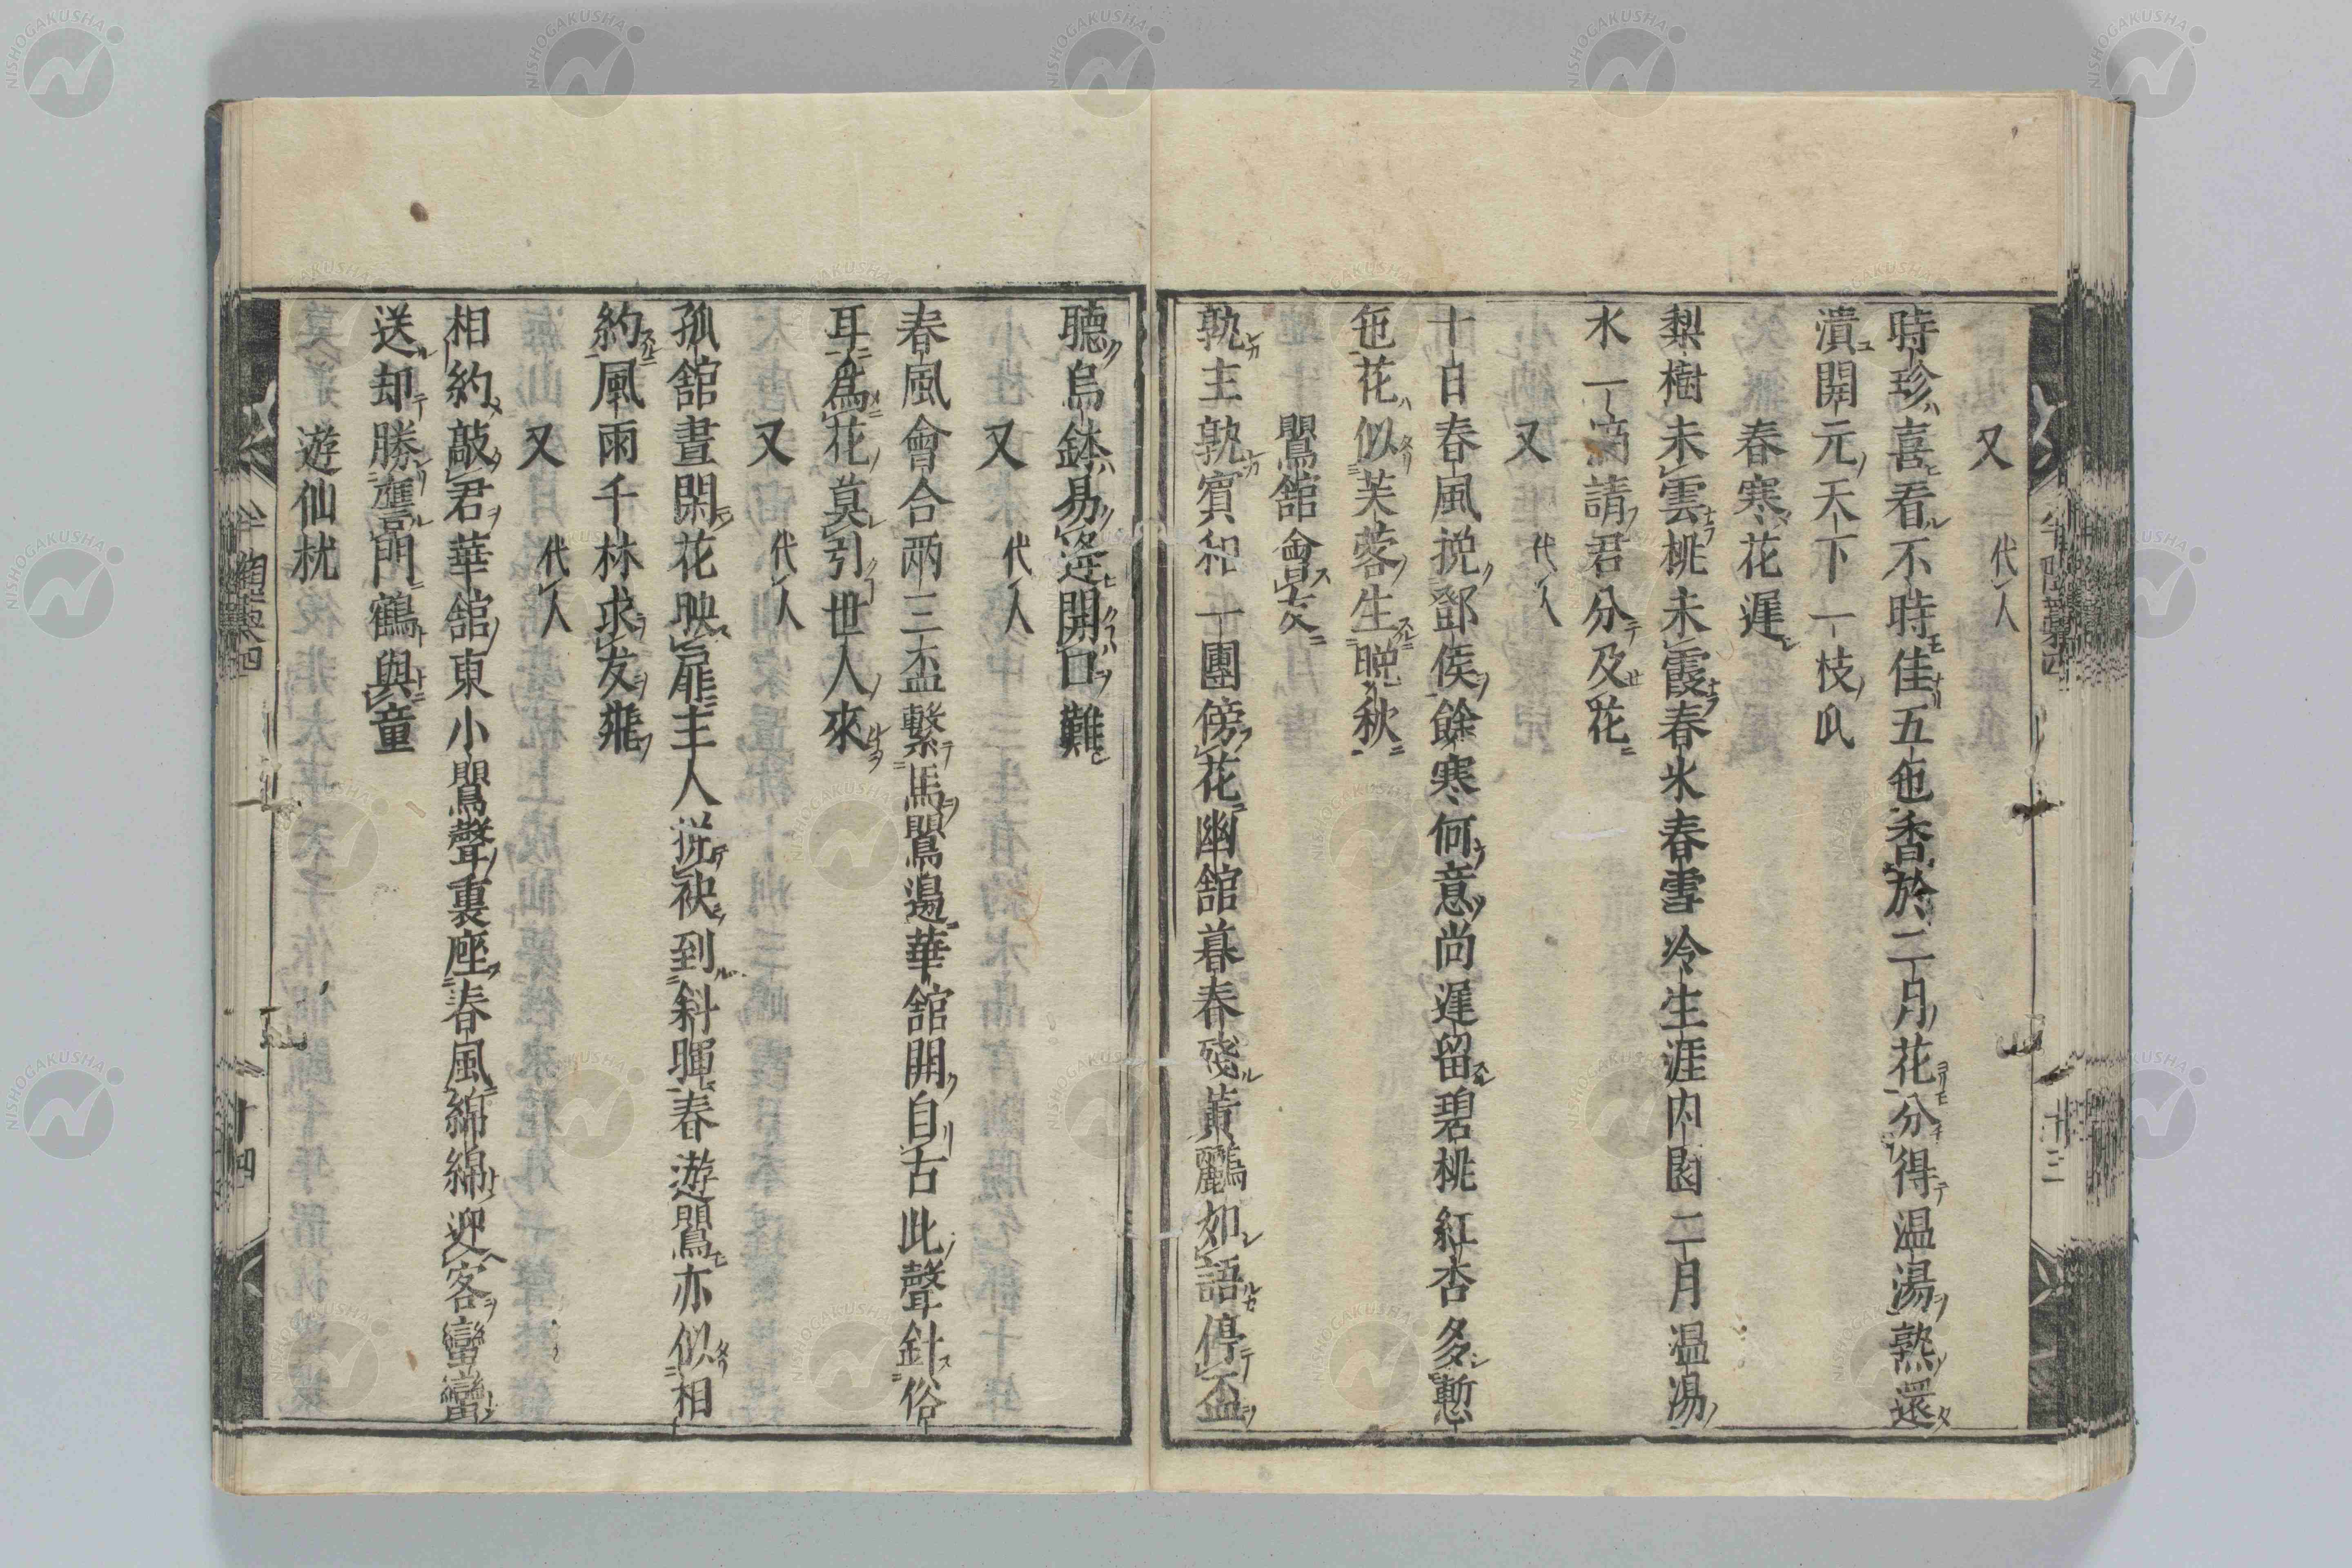 又　代人
時珍喜看不時佳五色香於二月花分得温湯熟還
漬開元天下一枝瓜
春寒花遲
梨樹未雲桃未霞春氷春雪冷生涯内園二月温湯
水一滴請君分及花
又　代人
十日春風挽鄧侯餘寒何意尚遲留碧桃紅杏多慙
色花似芙蓉生晩秋
鸎舘會友
孰主孰賓和一團傍花幽舘暮春殘黄鸝如語停盃
聽烏鉢易逢開口難
又　代人
春風會合兩三盃繫馬鸎邉華舘開自古此聲針俗
耳爲花莫引世人來
又　代人
孤舘晝閑花映扉主人従袂到斜暉春遊鸎亦似相
約風雨千林求友飛
又　代人
相約敲君華舘東小鸎聲裏座春風綿綿迎客蠻蠻
送却勝譍門鶴與童
遊仙枕
十三
十四
NISHOGAKUSHA